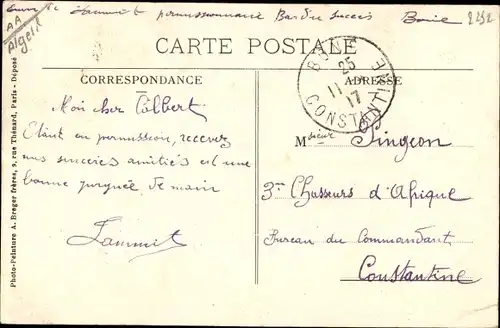 permissionnaire Bar du succès Bône 2252
AA
Algérie
CARTE POSTALE
CORRESPONDANCE
ADRESSE
BONE
25
11
17
CONSTANTINE
Mon cher Colbert
Etant en permission, recevez
mes sincères amitiés et une
bonne poignée de main
Lammit
Msieur Pingeon
3me Chasseurs d'Afrique
Bureau du Commandant
Constantine
Photo-Peinture A. Breger Frères, 9, rue Thénard, Paris - Déposé